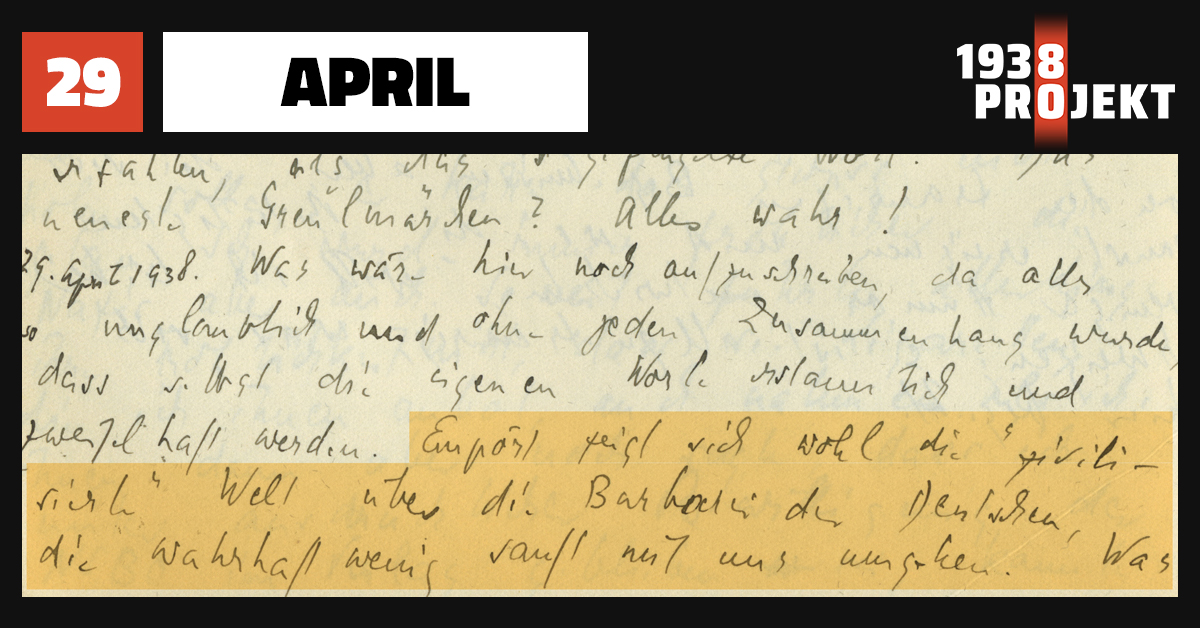 29
APRIL
1938
PROJEKT
erfahren, als das
neueste Greulmärchen? Alles wahr!
29. April 1938. Was wäre hier noch aufzuschreiben, da alles
so unglaublich und ohne jeden Zusammenhang wurde,
dass selbst die eigenen Worte erstaunlich und
zweifelhaft werden. Empört zeigt sich wohl die "zivili-
sierte" Welt über die Barbarei der Deutschen,
die wahrhaft wenig sanft mit uns umgehen. Was